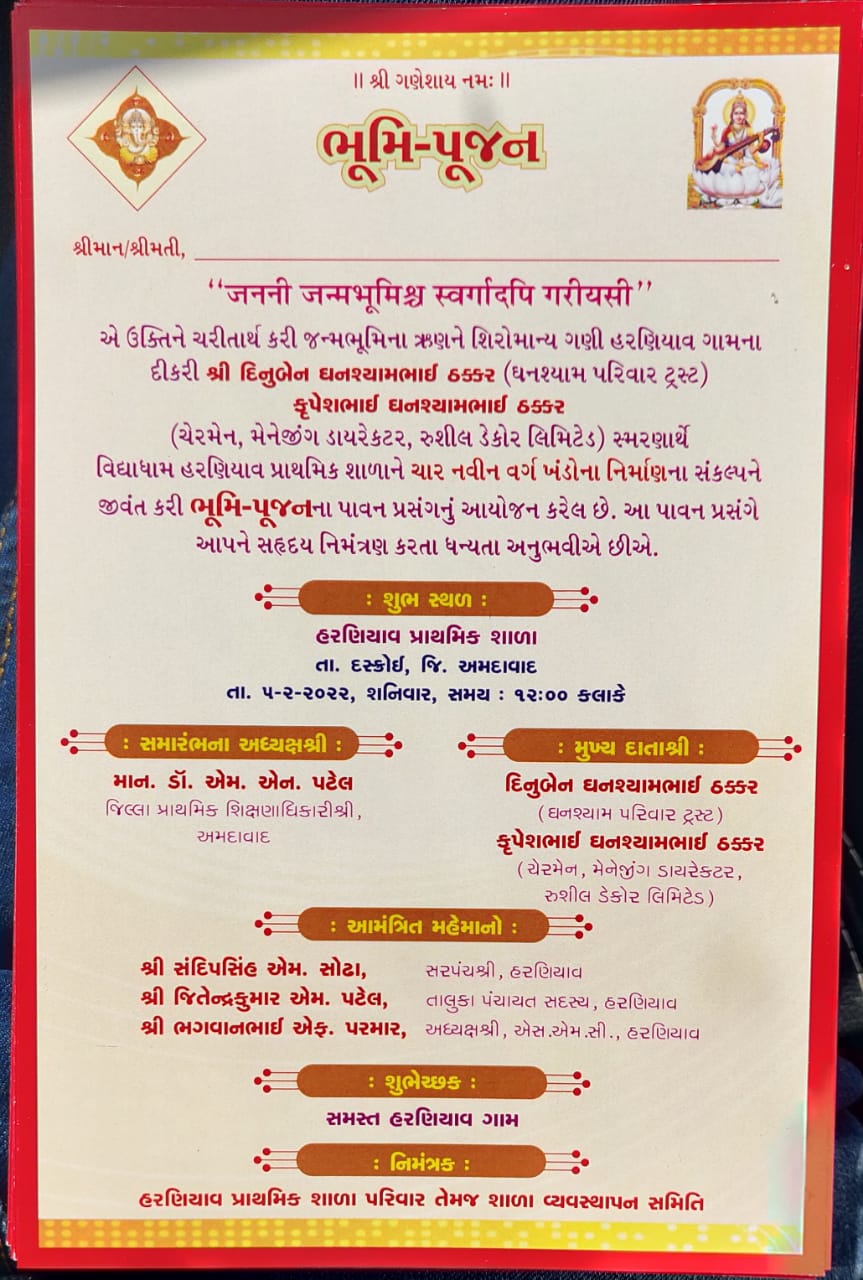 ॥ શ્રી ગણેશાય નમઃ ॥
ભૂમિ-પૂજન
શ્રીમાન/શ્રીમતી,
“જનની જન્મભૂમિશ્ચ સ્વર્ગાદપિ ગરીયસી”
એ ઉક્તિને ચરીતાર્થ કરી જન્મભૂમિના ઋણને શિરોમાન્ય ગણી હરણિયાવ ગામના
દીકરી શ્રી દિનુબેન ઘનશ્યામભાઈ ઠક્કર (ઘનશ્યામ પરિવાર ટ્રસ્ટ)
કૃપેશભાઈ ઘનશ્યામભાઈ ઠક્કર
(ચેરમેન, મેનેજીંગ ડાયરેક્ટર, રુશીલ ડેકોર લિમિટેડ) સ્મરણાર્થે
વિદ્યાધામ હરણિયાવ પ્રાથમિક શાળાને ચાર નવીન વર્ગ ખંડોના નિર્માણના સંકલ્પને
જીવંત કરી ભૂમિ-પૂજનના પાવન પ્રસંગનું આયોજન કરેલ છે. આ પાવન પ્રસંગે
આપને સહૃદય નિમંત્રણ કરતા ધન્યતા અનુભવીએ છીએ.
: શુભ સ્થળ :
હરણિયાવ પ્રાથમિક શાળા
તા. દસ્ક્રોઈ, જિ. અમદાવાદ
તા. ૫-૨-૨૦૨૨, શનિવાર, સમય : ૧૨:૦૦ કલાકે
: સમારંભના અધ્યક્ષશ્રી :
માન. ડૉ. એમ. એન. પટેલ
જિલ્લા પ્રાથમિક શિક્ષણાધિકારીશ્રી,
અમદાવાદ
: મુખ્ય દાતાશ્રી :
દિનુબેન ઘનશ્યામભાઈ ઠક્કર
(ઘનશ્યામ પરિવાર ટ્રસ્ટ)
કૃપેશભાઈ ઘનશ્યામભાઈ ઠક્કર
(ચેરમેન, મેનેજીંગ ડાયરેક્ટર,
રુશીલ ડેકોર લિમિટેડ)
: આમંત્રિત મહેમાનો :
શ્રી સંદિપસિંહ એમ. સોઢા, સરપંચશ્રી, હરણિયાવ
શ્રી જિતેન્દ્રકુમાર એમ. પટેલ, તાલુકા પંચાયત સદસ્ય, હરણિયાવ
શ્રી ભગવાનભાઈ એફ. પરમાર, અધ્યક્ષશ્રી, એસ.એમ.સી., હરણિયાવ
: શુભેચ્છક :
સમસ્ત હરણિયાવ ગામ
: નિમંત્રક :
હરણિયાવ પ્રાથમિક શાળા પરિવાર તેમજ શાળા વ્યવસ્થાપન સમિતિ